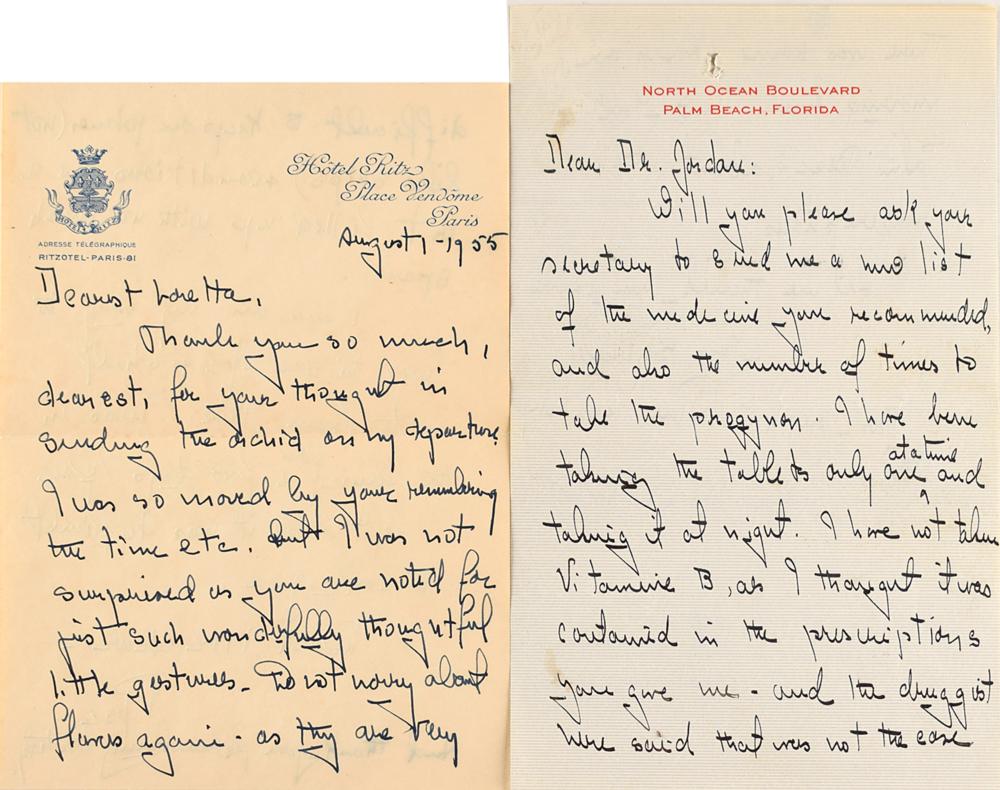 Hôtel Ritz
Place Vendôme
Paris
ADRESSE TÉLÉGRAPHIQUE
RITZOTEL-PARIS-81
August 1-1955
Dearest Loretta,
Thank you so much,
dearest, for your thought in
sending the orchid on my departure.
I was so moved by your remembering
the time etc. But I was not
surprised as you are noted for
just such wonderfully thoughtful
little gestures. Do not worry about
flowers again - as they are very
NORTH OCEAN BOULEVARD
PALM BEACH, FLORIDA
Dear Dr. Jordan:
Will you please ask your
secretary to send me a new list
of the medicine you recommended,
and also the number of times to
take the progynon. I have been
at a time
taking the tablets only one and
taking it at night. I have not taken
Vitamine B, as I thought it was
contained in the prescriptions
you give me - and the druggist
here said that was not the case